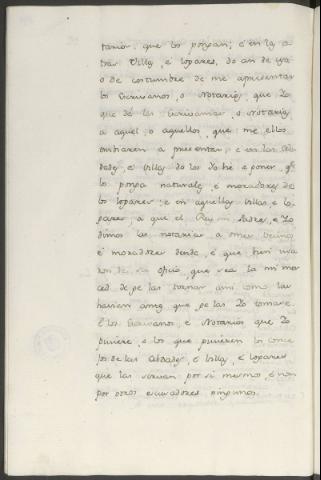 tarios, que los posean; é en las o-
tras Villas, é logares, do an de uso
o de costumbre de me apresentar
los Escrivanos, o Notarios, que Yo
que dé las Escrivanias, o Notarias
a aquel, o aquellos, que me ellos
embiaren a presentar; é en las Cib-
dades, é villas do los Yo hé a poner, qe
los ponga naturales, é moradores de
los logares; é en aquellas villas, é lo-
gares, a que el Rey mi Padre, é Yo
dimos las notarias a omes vecinos
é moradores dende, é que bien usa-
ron de su oficio, que sea la mi mer-
ced de ge las tornar asi como las
havian antes que ge las Yo tomase.
E los Escrivanos, e Notarios que Yo
pusiere, e los que pusieren los conce-
jos de las Cibdades, é Villas, é Logares
que las sirvan por si mesmos, é non
por otros escusadores ningunos.